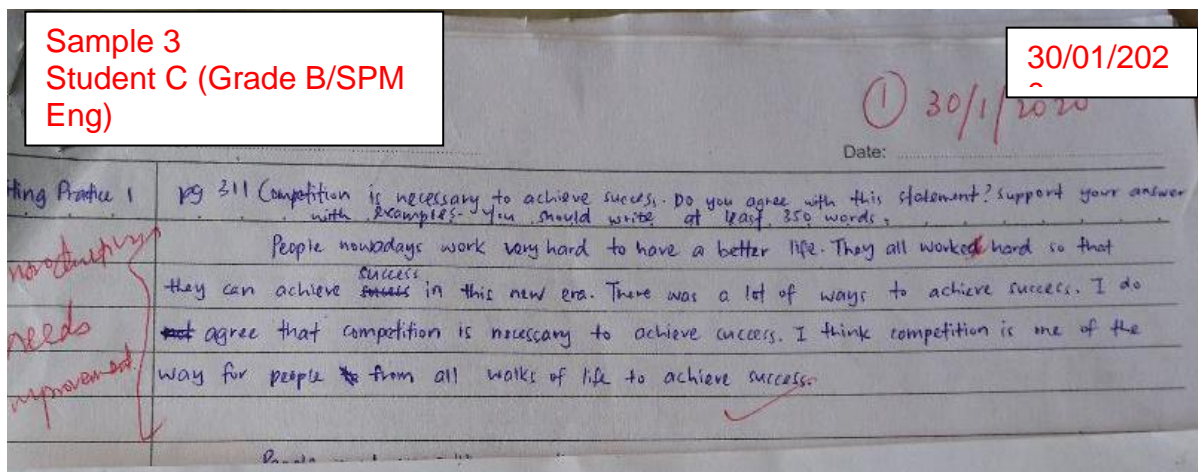 Sample 3
Student C (Grade B/SPM
Eng)
30/01/202
① 30/1/2020
Date:
ting Practice 1
pg 311 Competition is necessary to achieve success. Do you agree with this statement? Support your answer
with examples. You should write at least 350 words.
People nowadays work very hard to have a better life. They all worked hard so that
they can achieve success in this new era. There was a lot of ways to achieve success. I do
not agree that competition is necessary to achieve success. I think competition is one of the
way for people to from all walks of life to achieve success.
needs
improvement
People